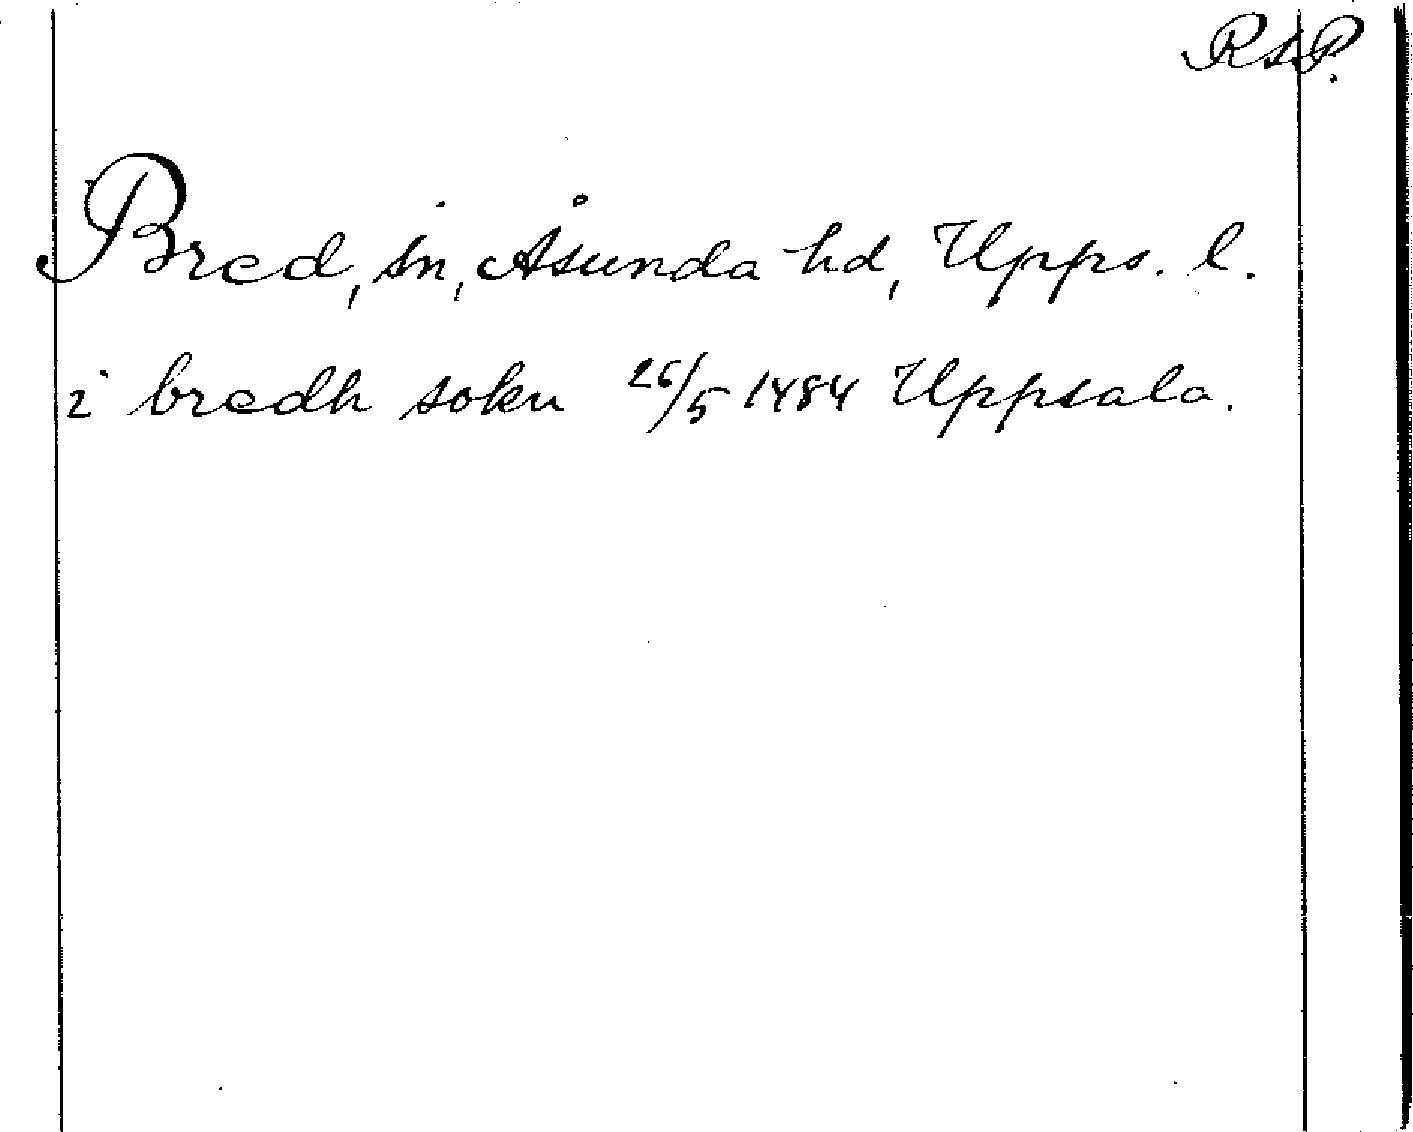 RAP.
Bred, sn, Åsunda hd, Upps. l.
i bredh sokn 26/5 1484 Uppsala.